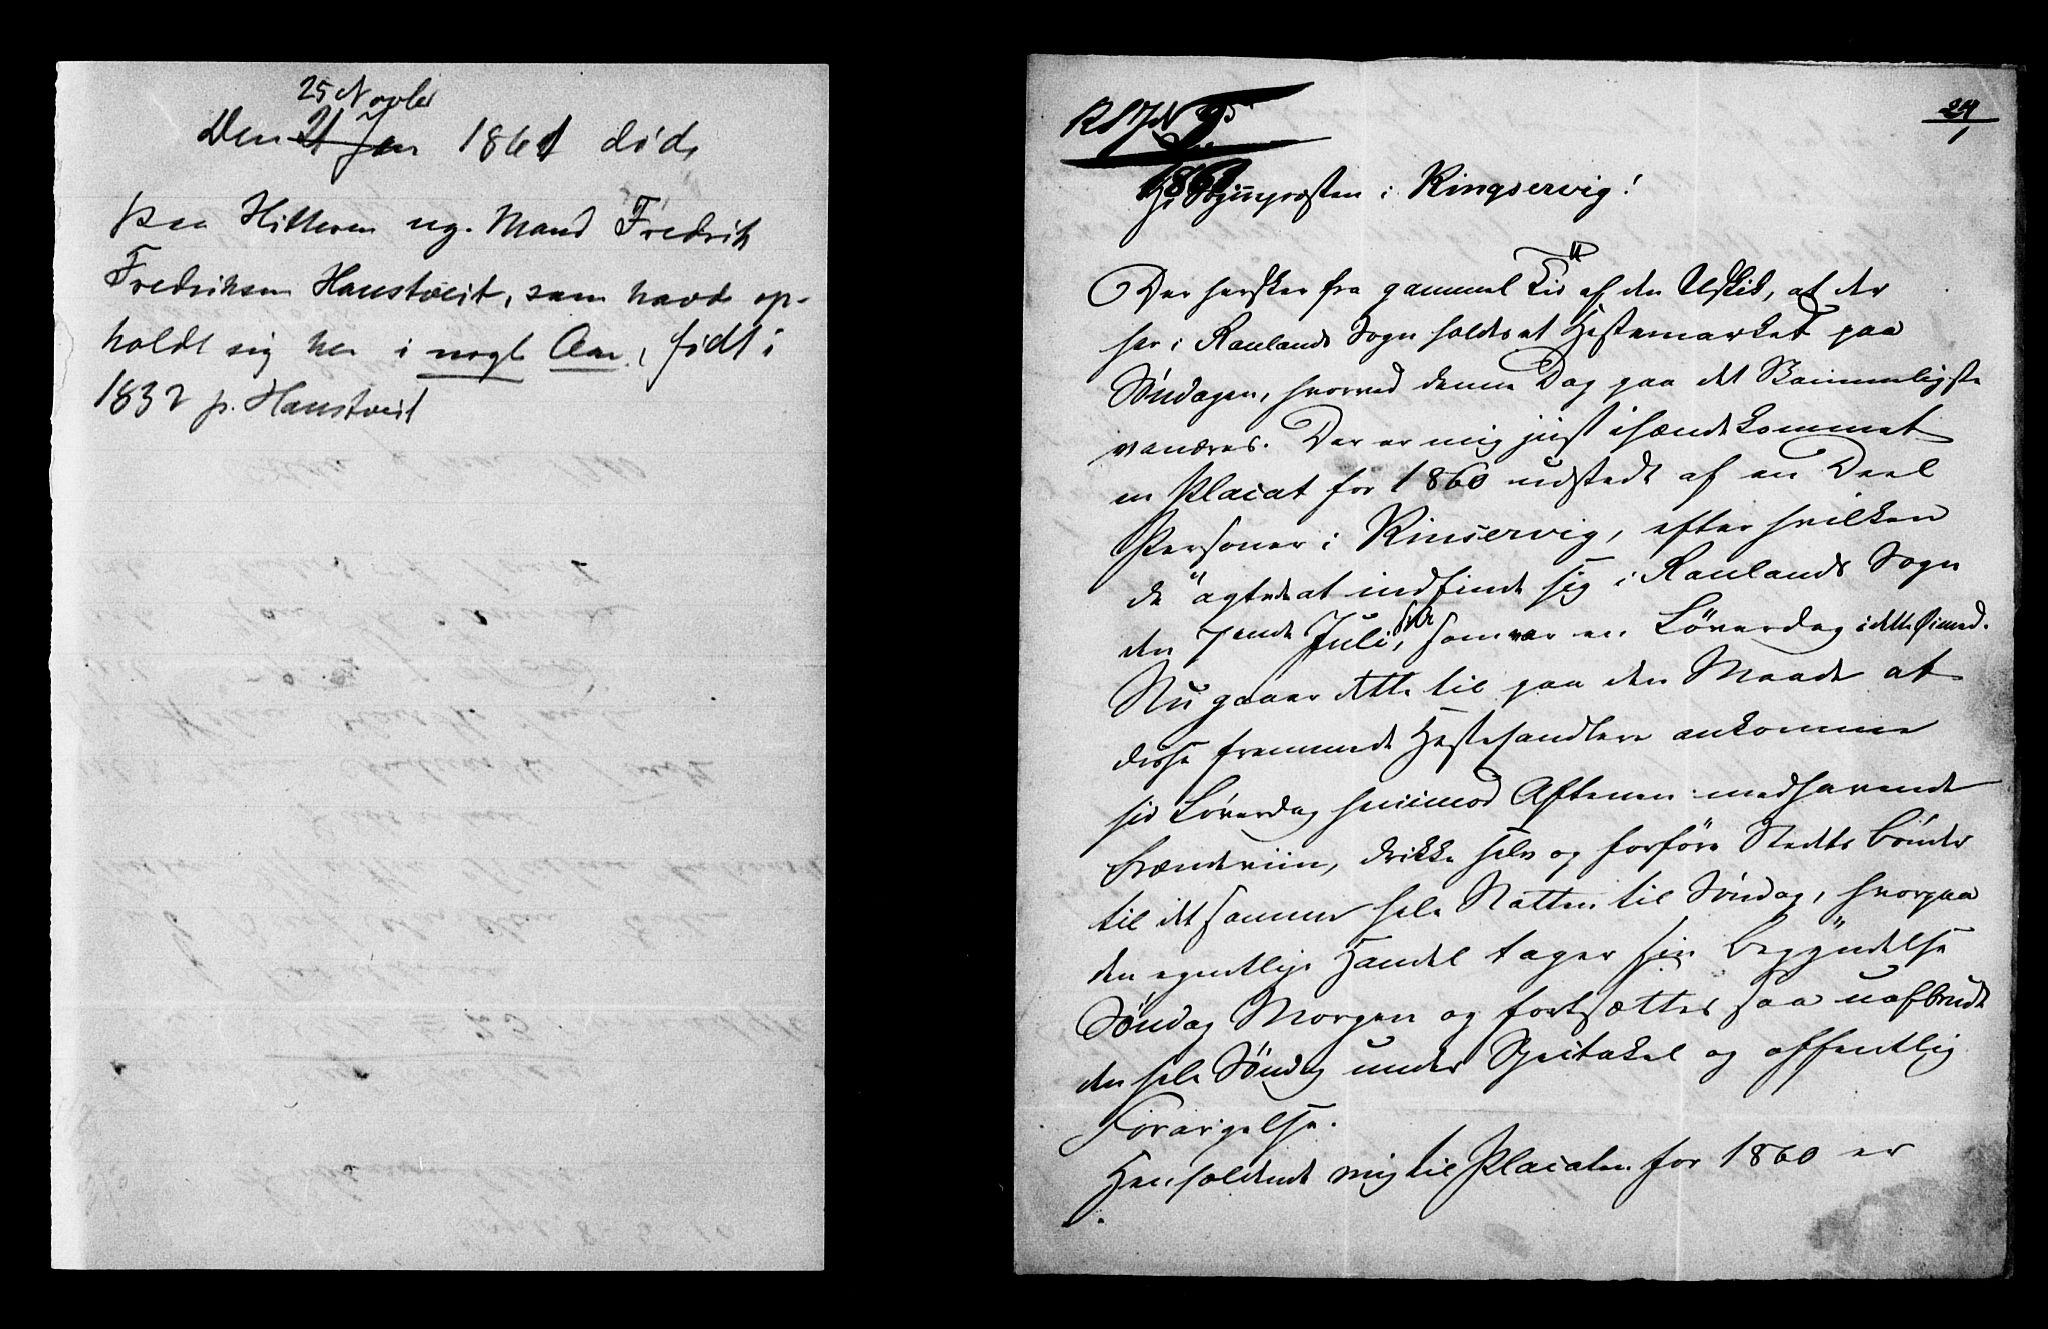 25 Novbr
Den 21 Jan 1861 døde
paa Hitteren ug. Mand Fredrik
Fredriksen Haustveit, som havde op-
holdt sig her i nogle Aar, født i
1832 p. Haustveit
24
1
1861
Hr Sognepræsten i Ringservig!
Der hersker fra gammel Tid af den Uskik, at der
her i Raulands Sogn holdes et Hestemarked paa
Søndagen, hvorved denne Dag paa det Skammeligste
vanæres. Der er mig just ihændekommet
en Placat for 1860 udstedt af en Deel
Personer i Rinservig, efter hvilken
de agtede at indfinde sig i Raulands Sogn
den 7ende Juli, som var en Løverdag i dette Øiemed.
Nu gaaer dette til paa den Maade at
disse fremmede Hestehandlere ankomme
hid Løverdag henimod Aftenen medhavende
Brændeviin, drikke selv og forføre Stedets Bønder
til det samme hele Natten til Søndag, hvorpaa
den egentlige Handel tager sin Begyndelse
Søndag Morgen og fortsættes saa uafbrudt
den hele Søndag under Spectakel og offentlig
Forargelse.
Henholdende mig til Placaten for 1860 er